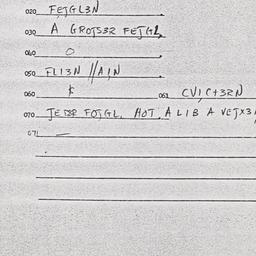 020 FEJGL3N
030 A GROJS3R FEJGL
040 O
050 FLI3N //A/N
060 061 CVI,C+3RN
070 FOJGL. HOT. A LIB A VEJX3
071 —